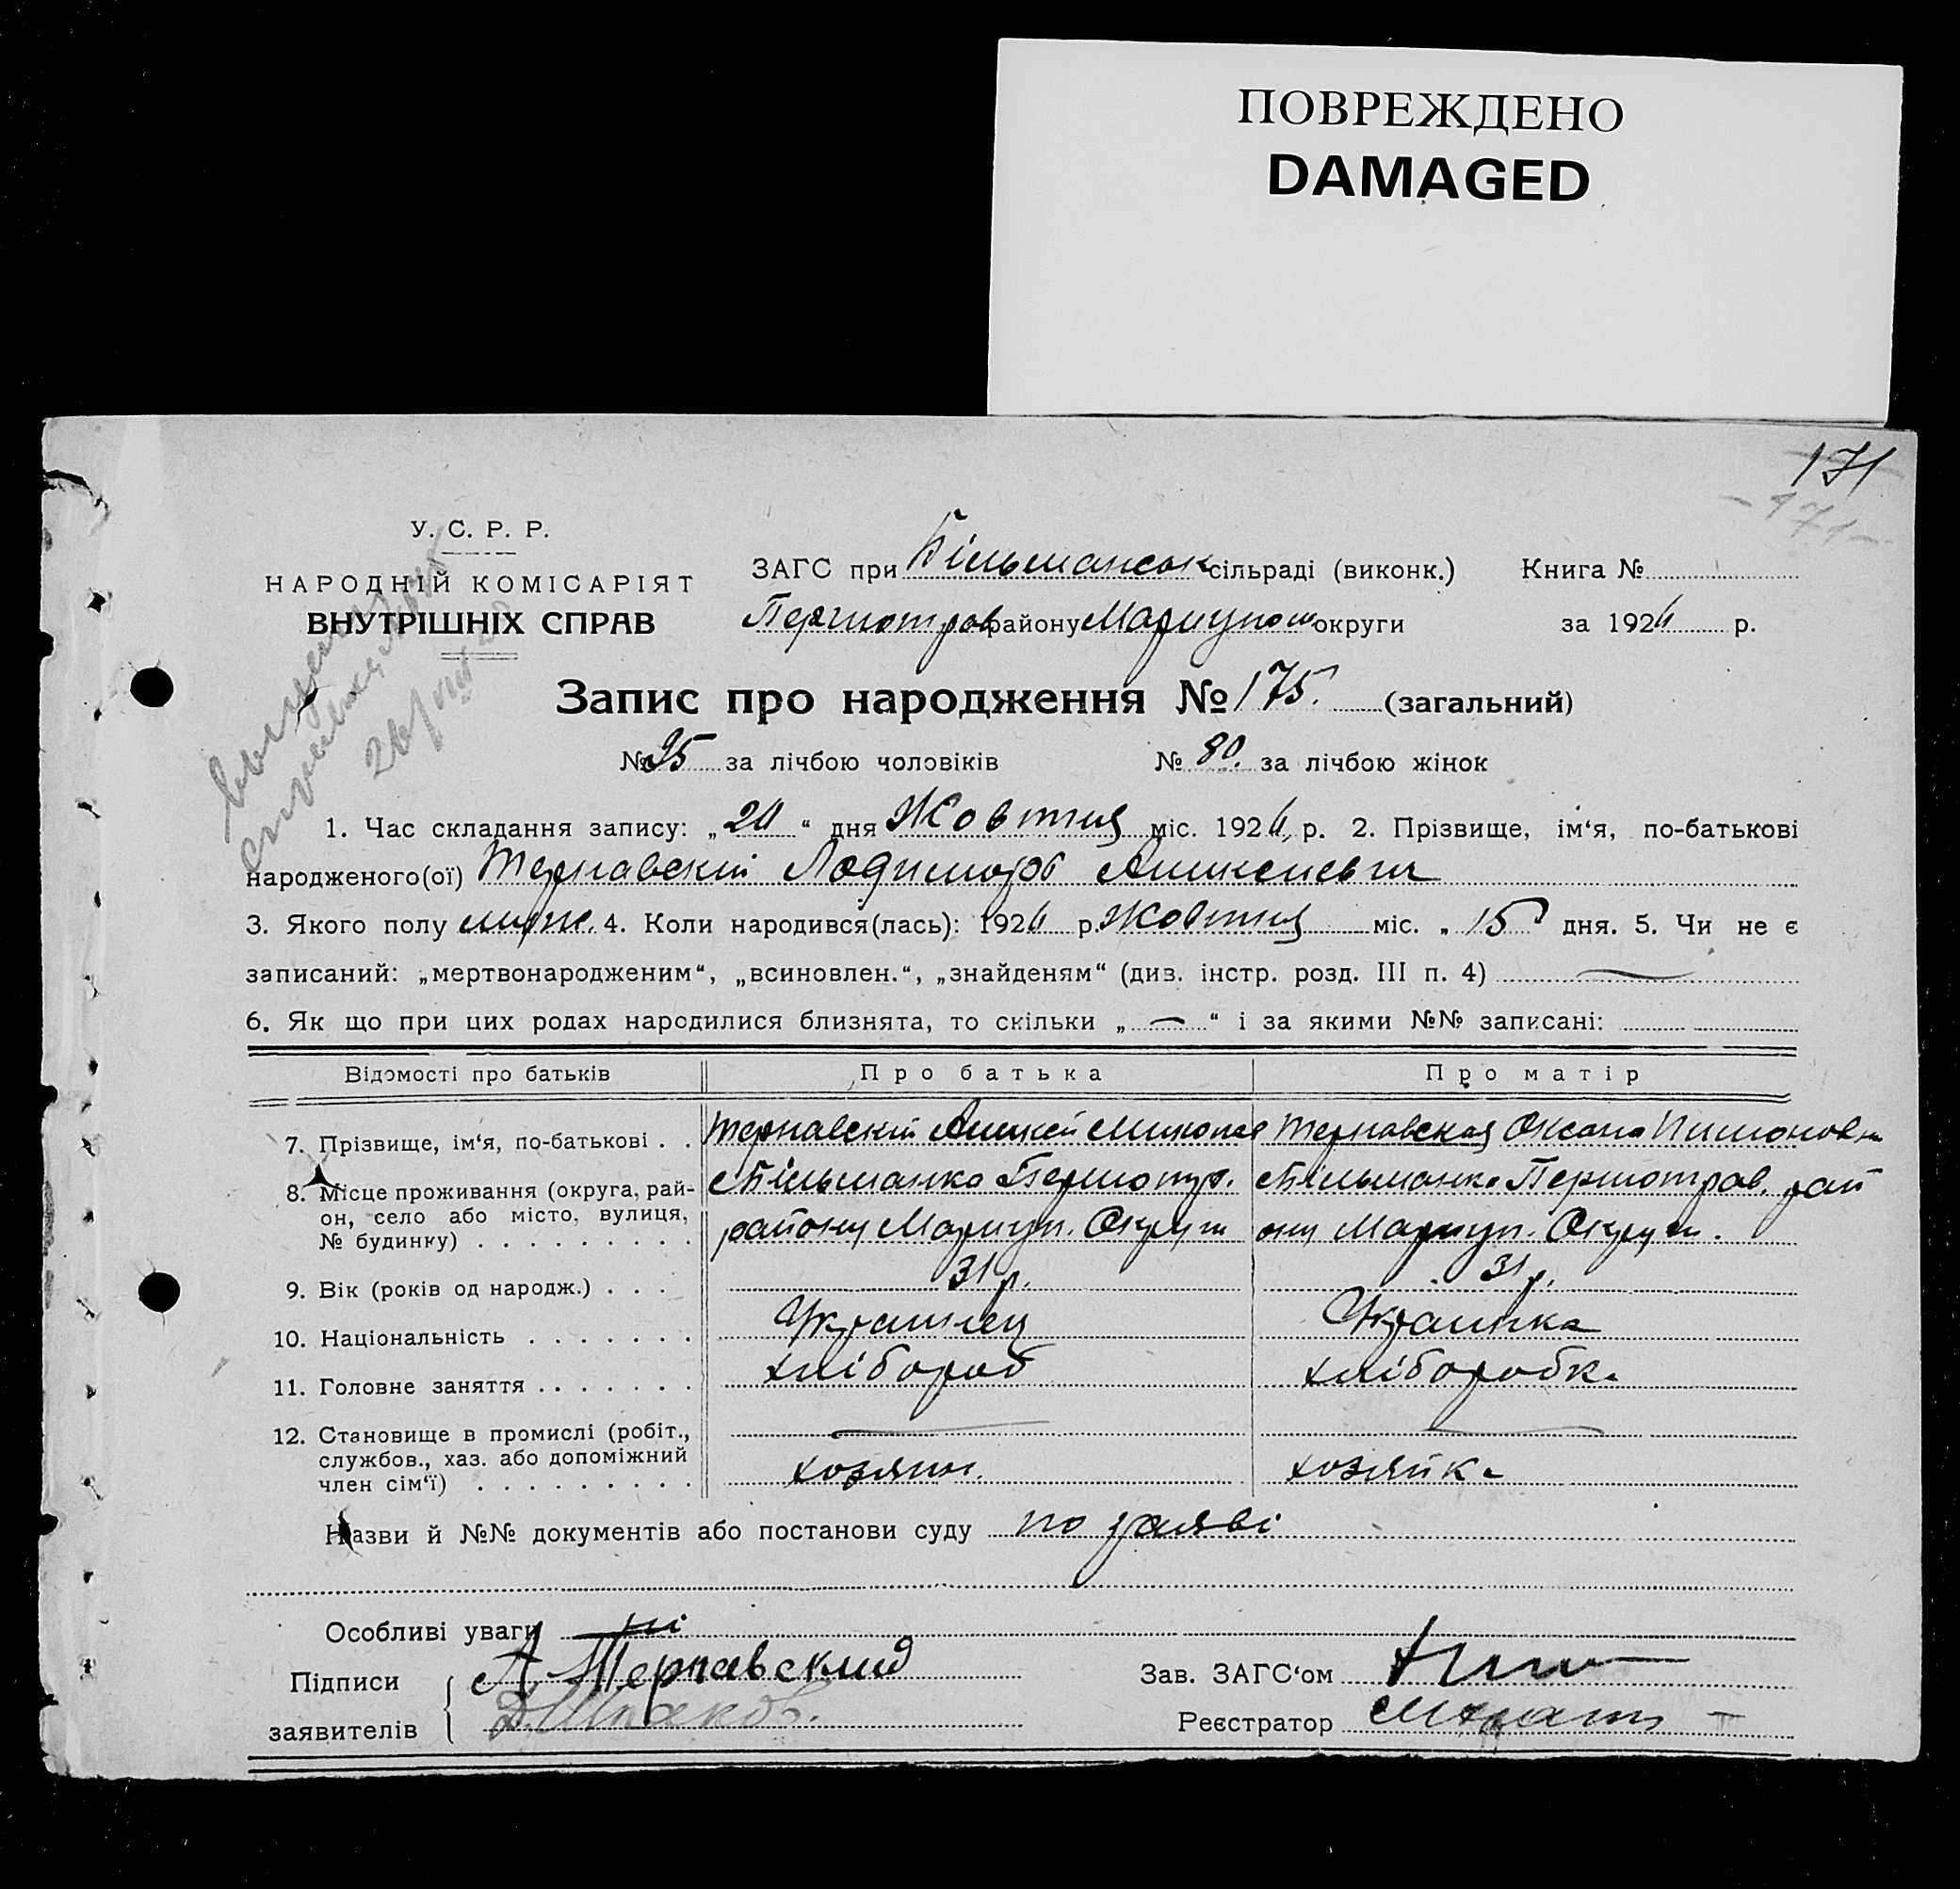 ПОВРЕЖДЕНО
DAMAGED
171
- 171 -
У. С. Р. Р.
НАРОДНІЙ КОМІСАРІЯТ
ВНУТРІШНІХ СПРАВ
ЗАГС при Більманськ сільраді (виконк.) Книга №
району Маріупол округи за 1924 р.
Запис про народження № 175. (загальний)
№ 95 за лічбою чоловіків № 80. за лічбою жінок
1. Час складання запису: „24“ дня Жовтня міс. 1924 р. 2. Прізвище, ім‘я, по-батькові
народженого(ої) Тернавскій
3. Якого полу муж. 4. Коли народився(лась): 1924 р. Жовтня міс. „15“ дня. 5. Чи не є
записаний: „мертвонародженим“, „всиновлен.“, „знайденям“ (див. інстр. розд. III п. 4) —
6. Як що при цих родах народилися близнята, то скільки „—“ і за якими №№ записані:
Відомості про батьків Про батька Про матір
7. Прізвище, ім‘я, по-батькові . . Тернавскій Тернавская Оксана
8. Місце проживання (округа, рай-
он, село або місто, вулиця,
№ будинку) . . . . . . . . .
с Більманка
району Маріуп. Округи
с Більманка Першотрав. рай
ону Маріуп. Округи.
9. Вік (років од народж.) . . . 31 р. 31 р.
10. Національність . . . . . . . Украинец Украинка
11. Головне заняття . . . . . . . хлібороб хліборобка
12. Становище в промислі (робіт.,
службов., хаз. або допоміжний
член сім‘ї) . . . . . . . . .
— —
хозяин. хозяйка
Назви й №№ документів або постанови суду по заяві
Особливі уваги ні
Підписи
заявителів
А Тернавский
Зав. ЗАГС‘ом
Реєстратор